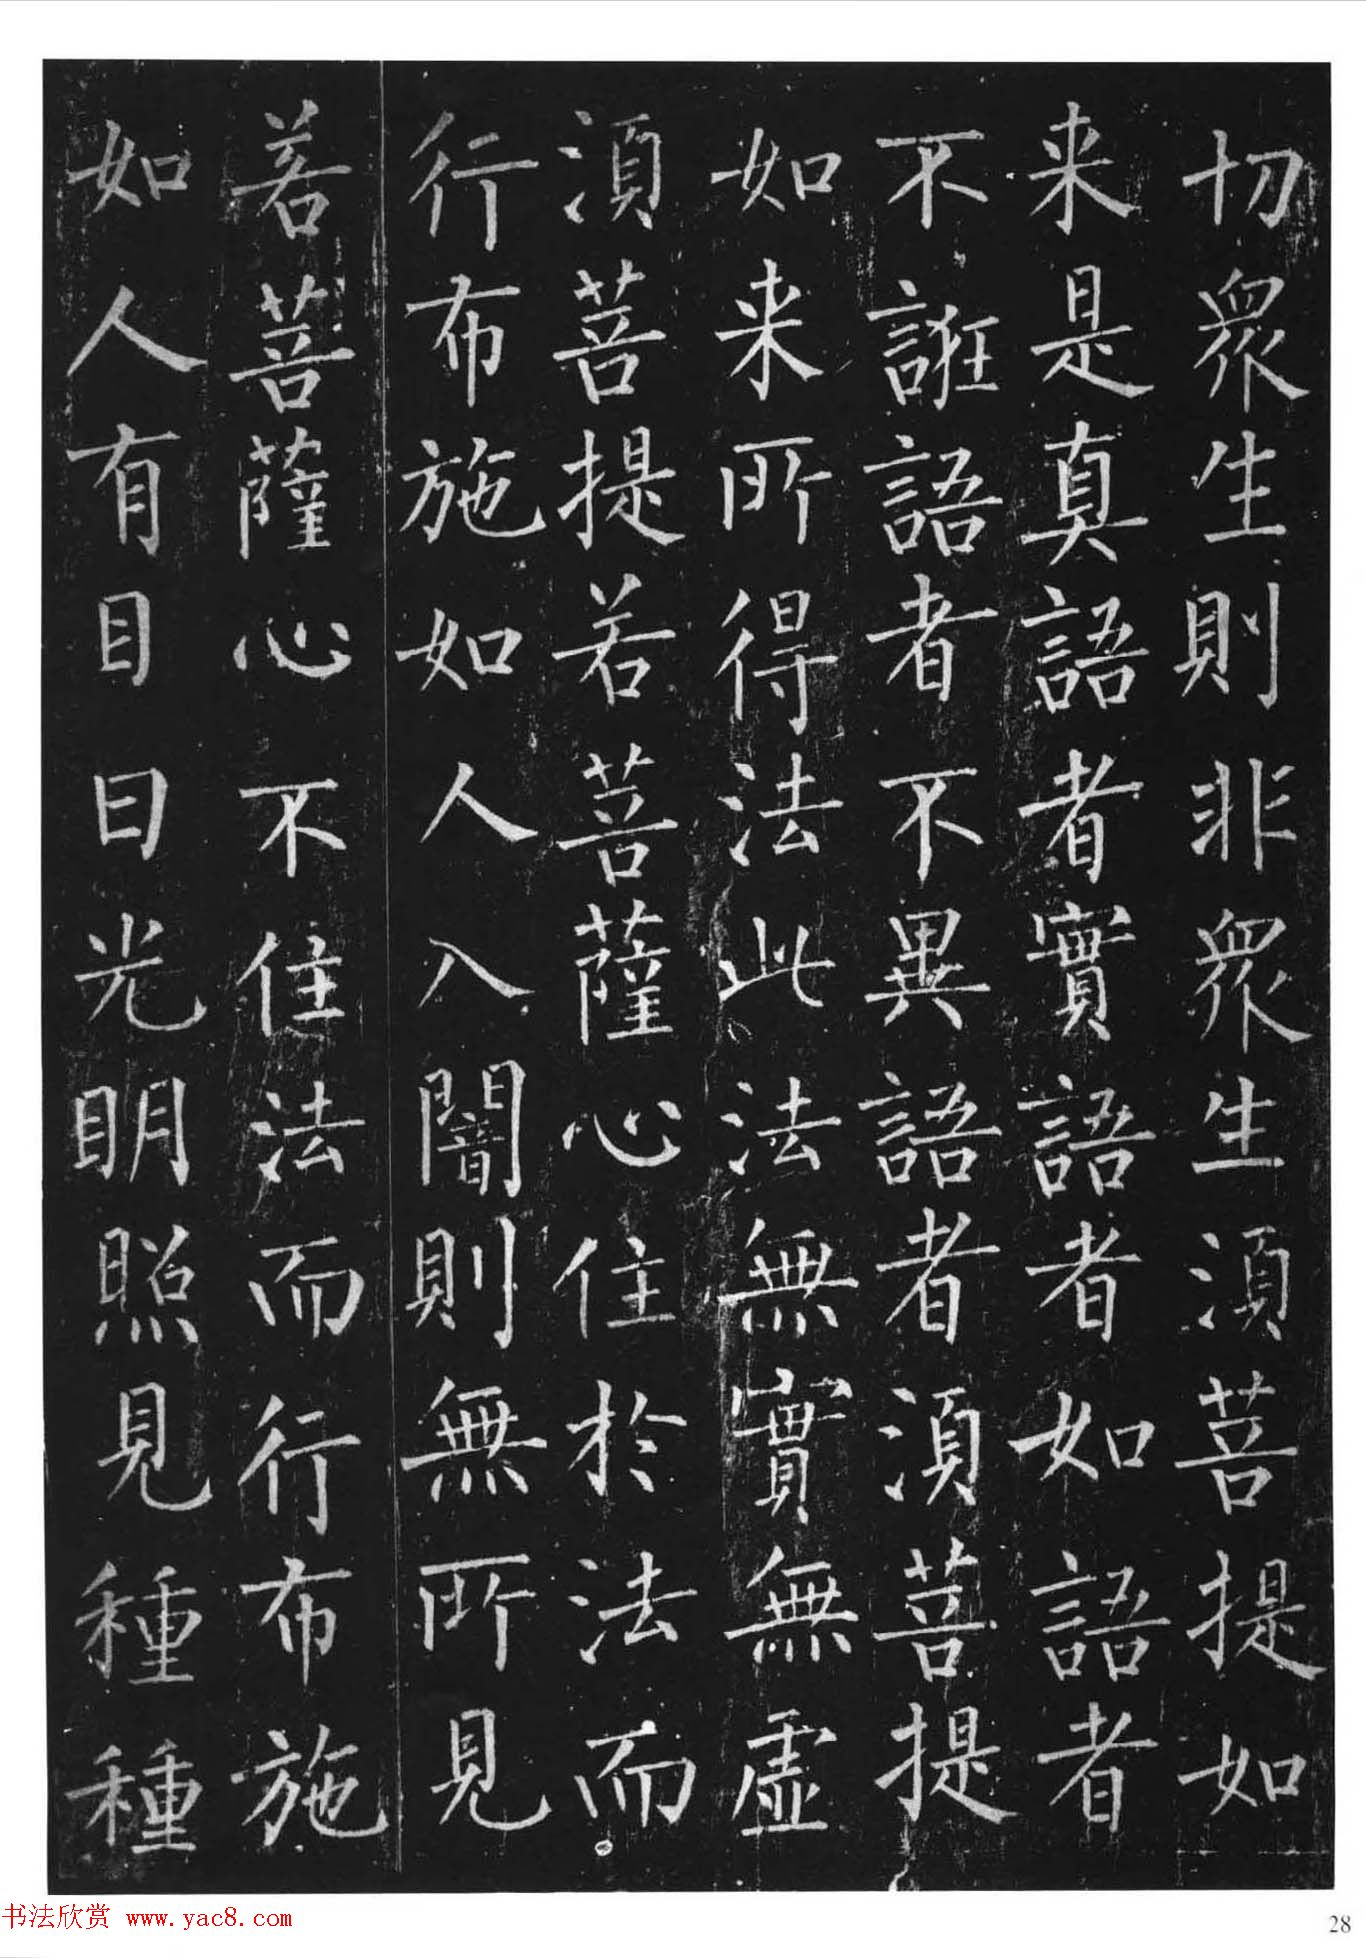 切衆生則非衆生須菩提如
来是真語者實語者如語者
不誑語者不異語者須菩提
如来所得法此法無實無虛
須菩提若菩薩心住於法而
行布施如人入闇則無所見
若菩薩心不住法而行布施
如人有目日光明照見種種
书法欣赏 www.yac8.com
28